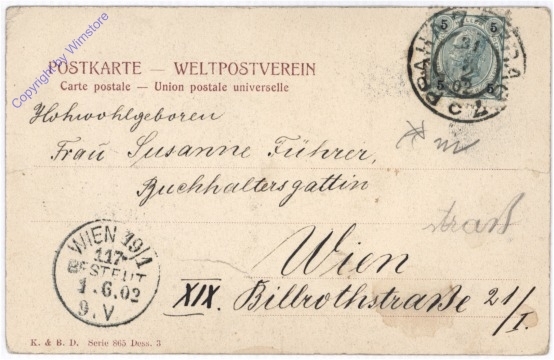 Copyright by Wimstore
5 5
5 5
02
POSTKARTE — WELTPOSTVEREIN
Carte postale — Union postale universelle
Hohwohlgeboren
Frau Susanne Führer,
Buchhaltersgattin
Wien
XIX. Billrothstraße 21/I.
WIEN 19/1
117
BESTELLT
1.6.02
9.V
K. & B. D. Serie 865 Dess. 3